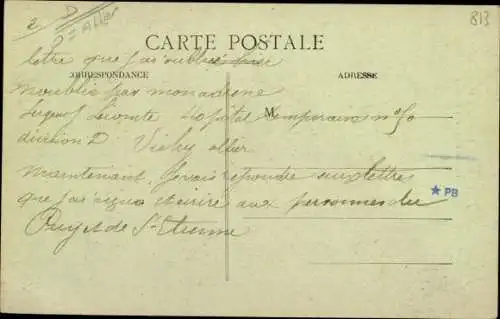 2
D
Dt Allier
813
CARTE POSTALE
CORRESPONDANCE
ADRESSE
letre que j'ai oublié
m'oublié pas mon adresse
M
Sergent Lecomte Hopital temporaire n° 50
division D. Vichy allier
Maintenant je vais repondre aux lettres
que j'ai reçus et ecrire aux personnes du
Puy et de St Etienne
★ PB